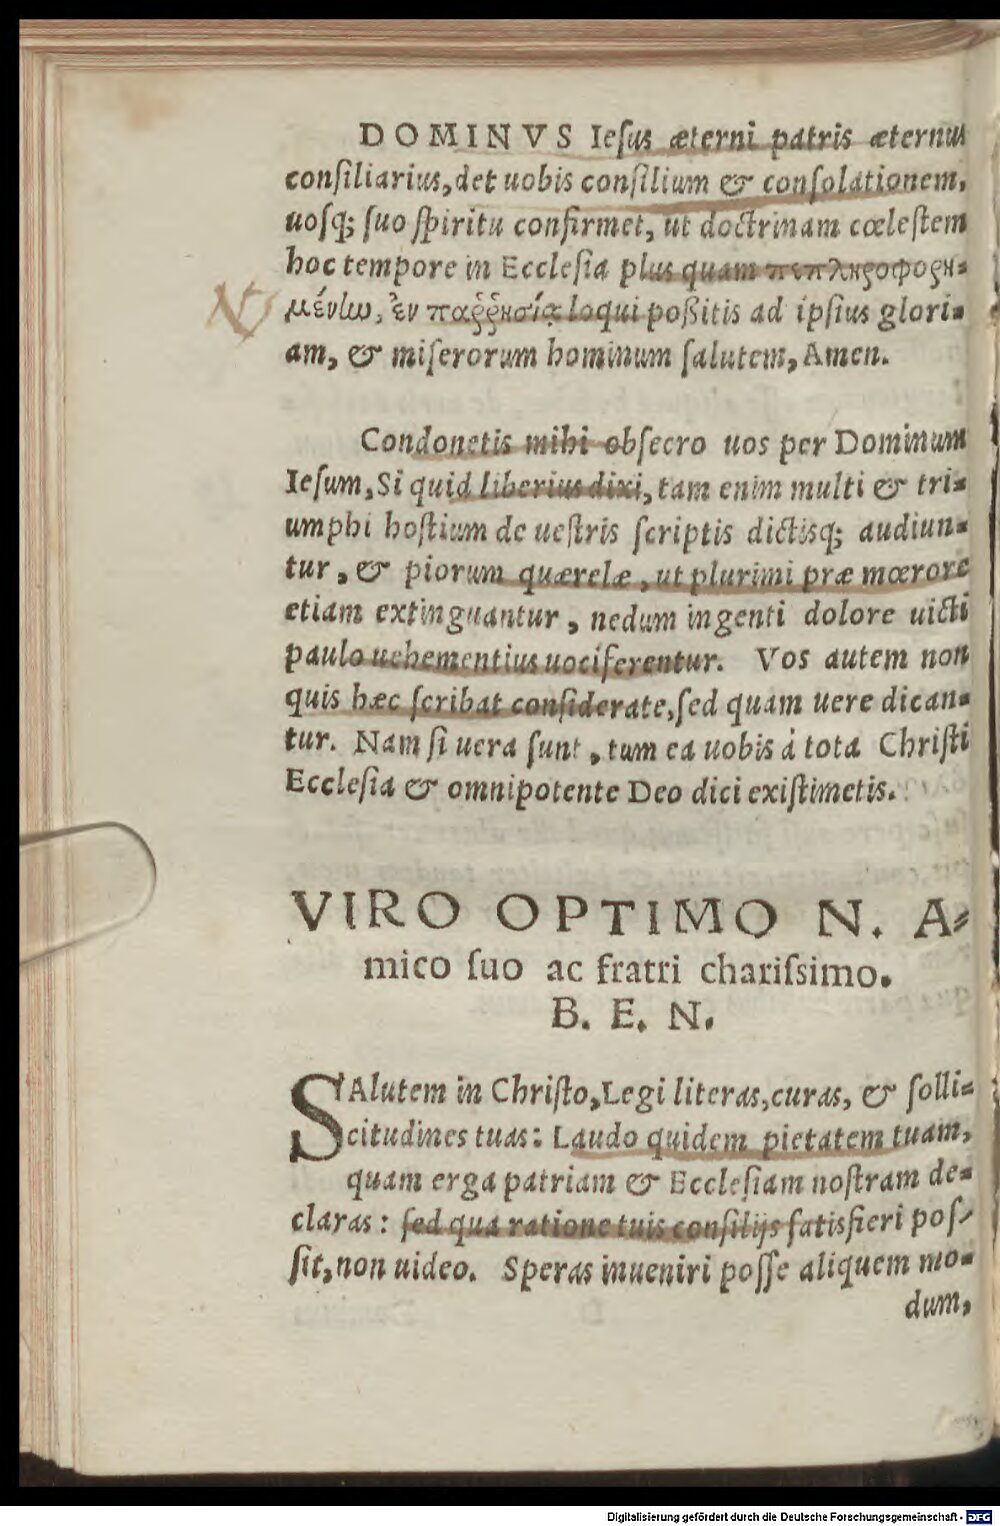 DOMINVS Ieſus æterni patris æternus
conſiliarius, det uobis conſilium & conſolationem,
uoſq; ſuo ſpiritu confirmet, ut doctrinam cœleſtem
hoc tempore in Eccleſia plus quam πεπληροφορη-
μένω, ἐν παῤῥησίᾳ loqui poßitis ad ipſius glori-
am, & miſerorum hominum ſalutem, Amen.
Condonetis mihi obſecro uos per Dominum
Ieſum, Si quid liberius dixi, tam enim multi & tri-
umphi hoſtium de ueſtris ſcriptis dictisq; audiun-
tur, & piorum quærelæ, ut plurimi præ mœrore
etiam extinguantur, nedum ingenti dolore uicti
paulo uehementius uociferentur. Vos autem non
quis hæc ſcribat conſiderate, ſed quam uere dican-
tur. Nam ſi uera ſunt, tum ea uobis à tota Chriſti
Eccleſia & omnipotente Deo dici exiſtimetis.
VIRO OPTIMO N. A-
mico ſuo ac fratri chariſsimo.
B. E. N.
SAlutem in Chriſto, Legi literas, curas, & ſolli-
citudines tuas: Laudo quidem pietatem tuam,
quam erga patriam & Eccleſiam noſtram de-
claras: ſed qua ratione tuis conſilijs ſatisfieri poſ-
ſit, non uideo. Speras inueniri poſſe aliquem mo-
dum,
Digitalisierung gefördert durch die Deutsche Forschungsgemeinschaft - DFG